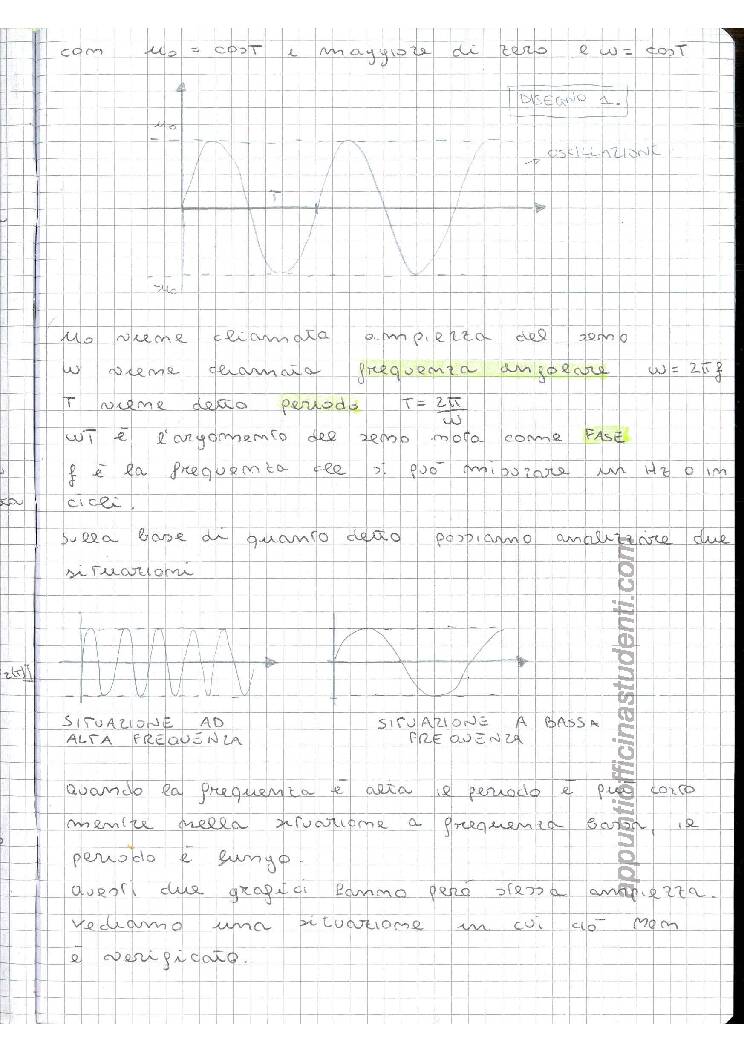 com u₀ = cosT e maggiore di zero e ω = cosT
DISEGNO 1.
u₀
→ OSCILLAZIONE
T
-u₀
u₀ viene chiamata ampiezza del seno
ω viene chiamata frequenza angolare ω = 2πf
T viene detto periodo T = 2π/ω
ωT è l'argomento del seno nota come FASE
f è la frequenza che si può misurare in Hz o in
cicli.
sulla base di quanto detto possiamo analizzare due
situazioni
SITUAZIONE AD
ALTA FREQUENZA
SITUAZIONE A BASSA
FREQUENZA
quando la frequenza è alta il periodo è più corto
mentre nella situazione a frequenza bassa, il
periodo è lungo.
questi due grafici hanno però stessa ampiezza.
vediamo una situazione in cui ciò non
è verificato.
appuntiofficinastudenti.com